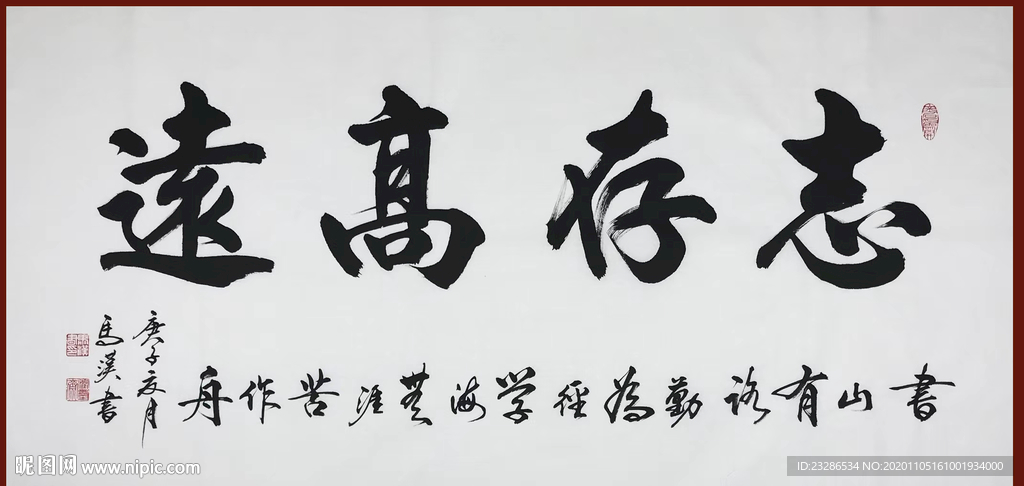 志存高遠
書山有路勤為徑学海無涯苦作舟
庚子夏月
馬漢書
昵图网 www.nipic.com
ID:23286534 NO:20201105161001934000